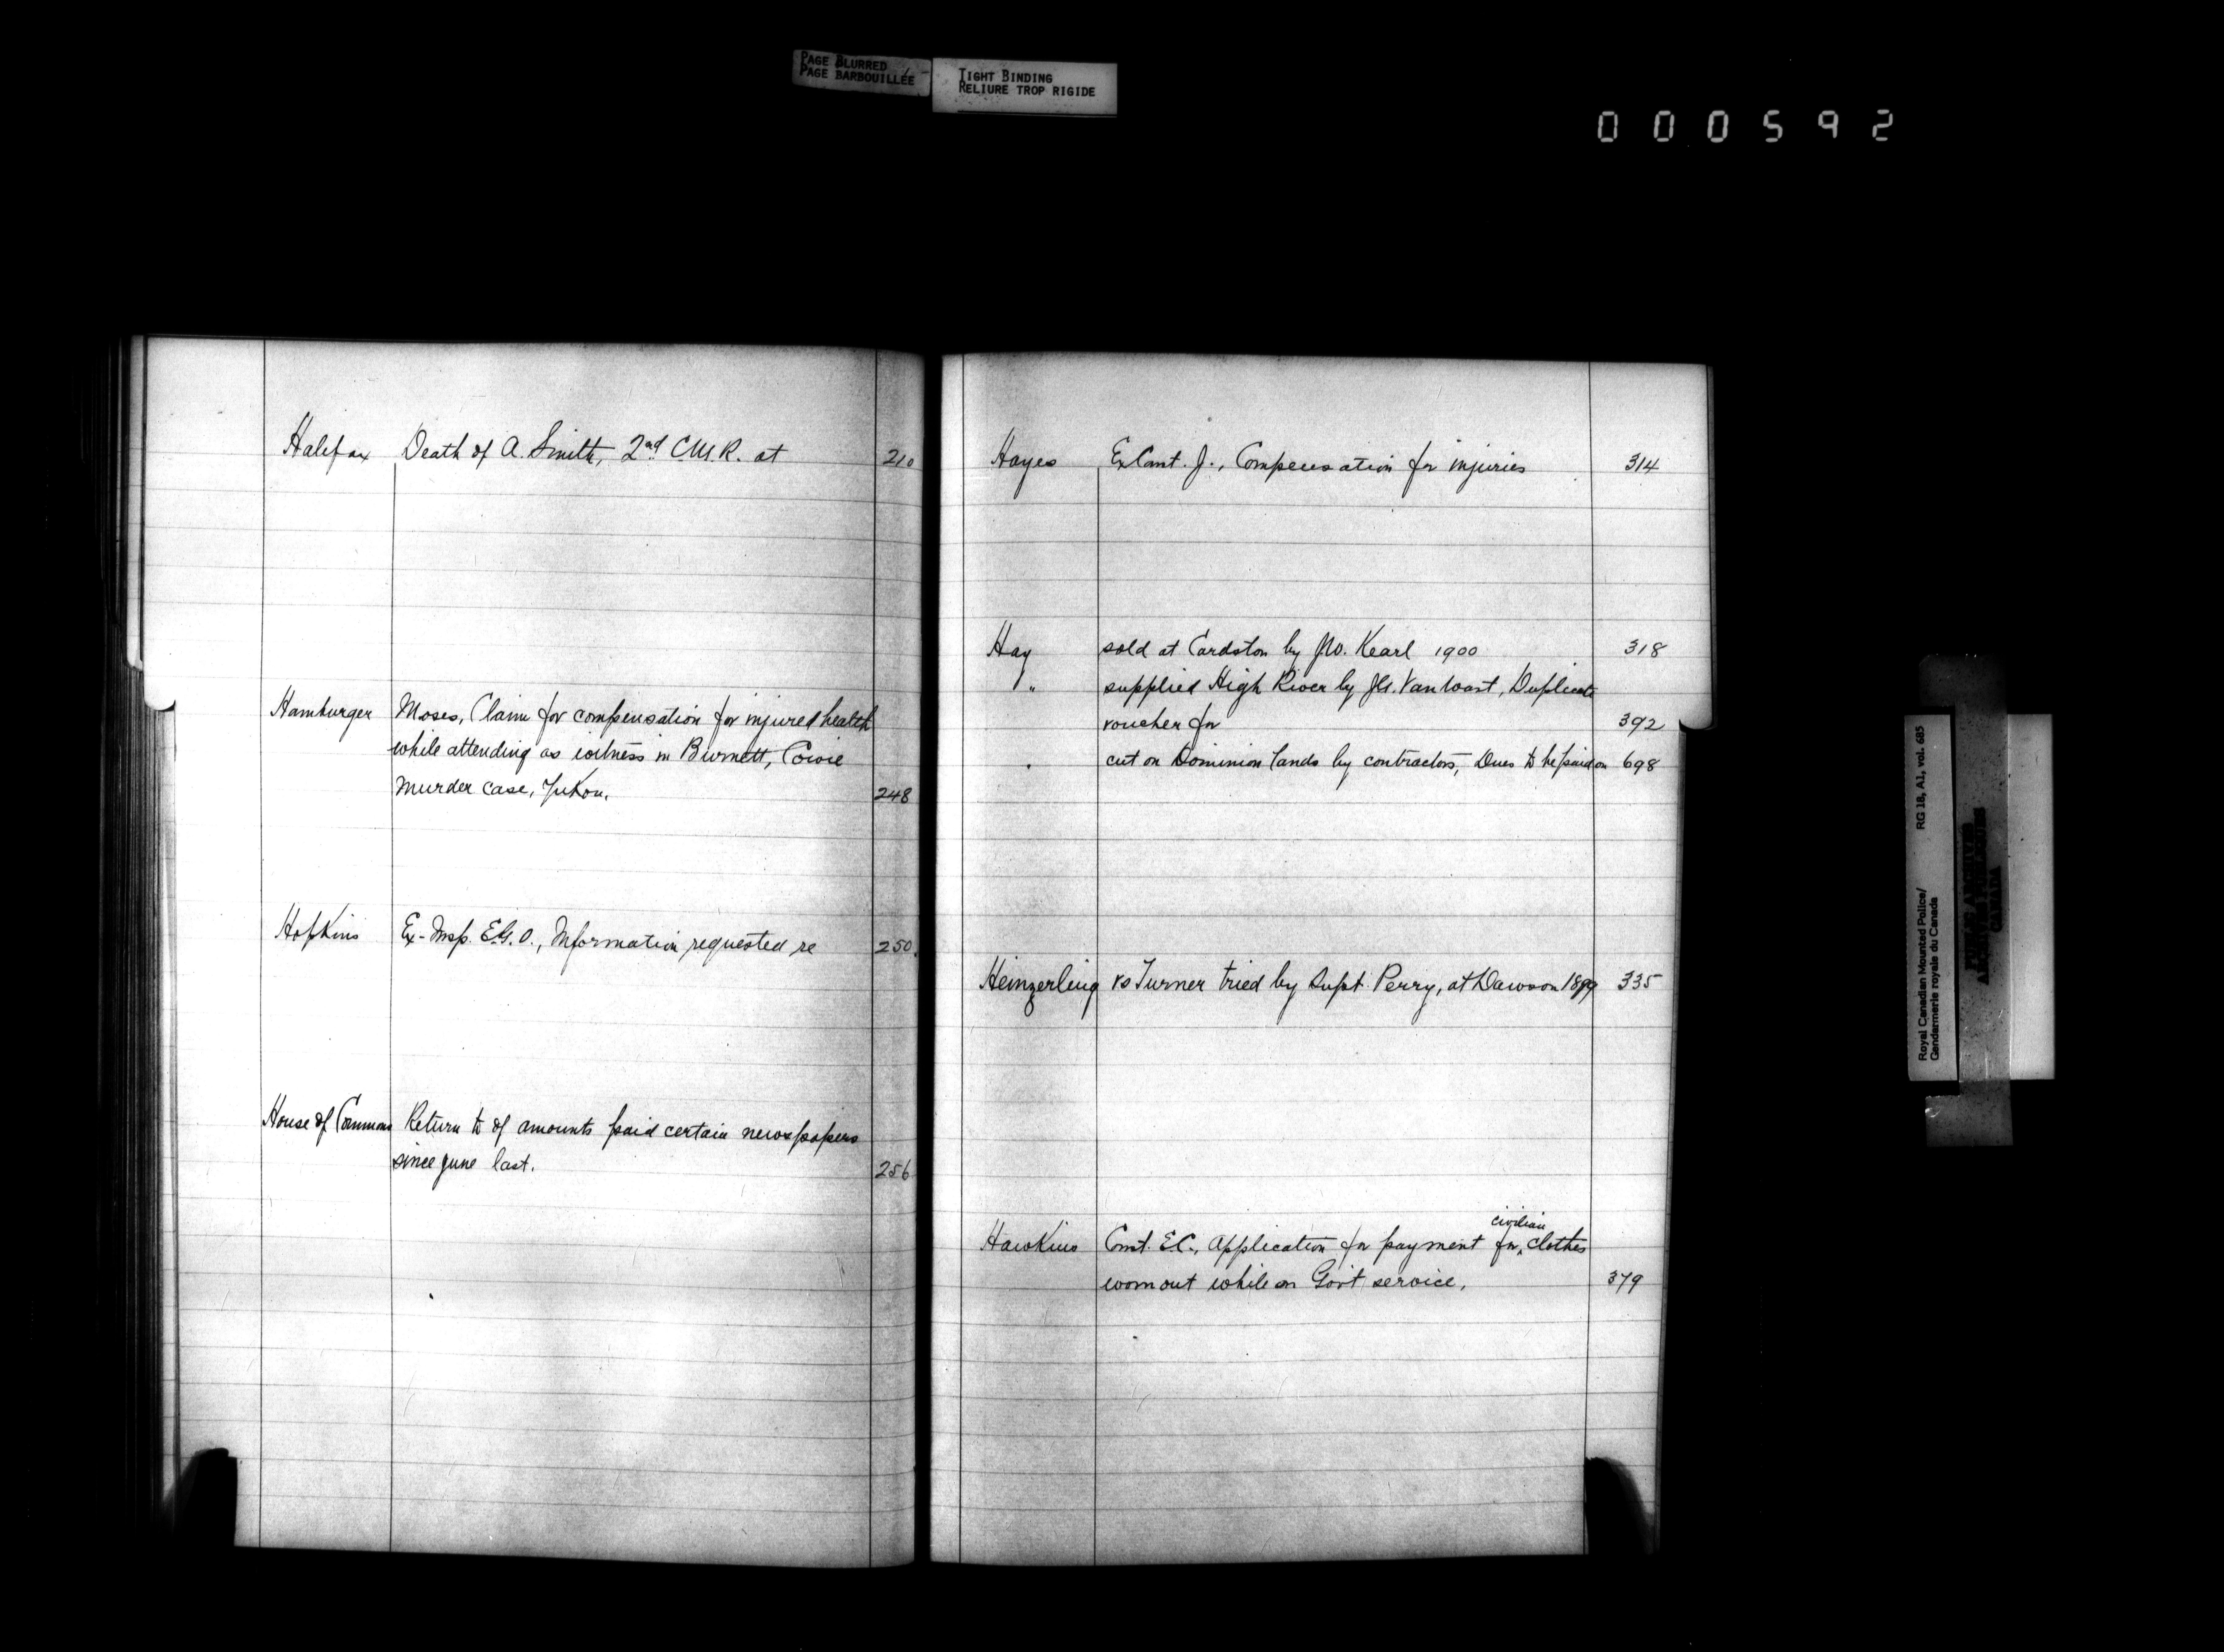 PAGE BLURRED
PAGE BARBOUILLÉE
TIGHT BINDING
RELIURE TROP RIGIDE
000592
Halifax Death of A. Smith, 2nd C.M.R. at 210
Hamburger Moses, Claim for compensation for injured health
while attending as witness in Burnett, Cowie
Murder case, Yukon. 248
Hopkins Ex-Insp. E.G.O., Information requested re 250.
House of Commons Return to of amounts paid certain newspapers
since June last. 256
Hayes Ex Const. J., Compensation for injuries 314
Hay sold at Cardston by J.W. Kearl 1900 318
" supplied High River by J.G. Van Wart, Duplicate
voucher for 392
" cut on Dominion lands by contractors, Dues to be paid on 698
Heinzerling vs Turner tried by Supt. Perry, at Dawson 1899 335
Hawkins Const. E.C., Application for payment for civilian clothes
worn out while on Gov't service. 379
Royal Canadian Mounted Police/ RG 18, A1, vol. 685
Gendarmerie royale du Canada
PUBLIC ARCHIVES
ARCHIVES PUBLIQUES
CANADA